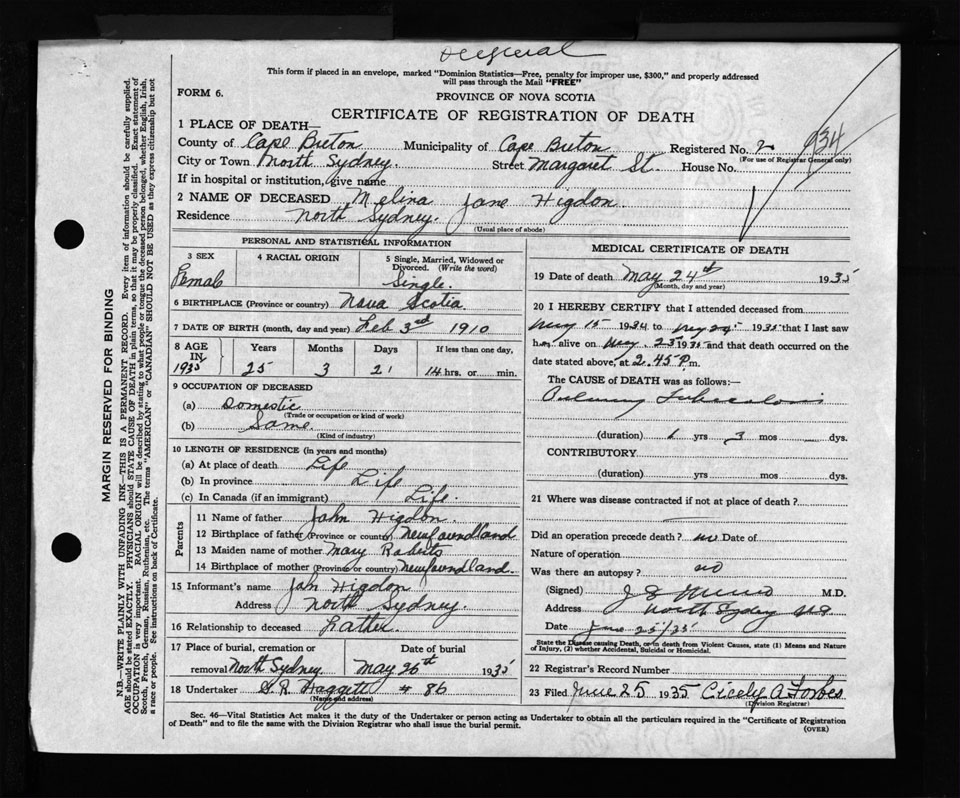 Original
This form if placed in an envelope, marked "Dominion Statistics—Free, penalty for improper use, $300," and properly addressed
will pass through the Mail "FREE"
FORM 6.
PROVINCE OF NOVA SCOTIA
CERTIFICATE OF REGISTRATION OF DEATH
1 PLACE OF DEATH—
County of Cape Breton Municipality of Cape Breton Registered No. 2 934
(For use of Registrar General only)
City or Town North Sydney. Street Margaret St. House No.
If in hospital or institution, give name
2 NAME OF DECEASED Melina Jane Higdon.
Residence North Sydney.
(Usual place of abode)
PERSONAL AND STATISTICAL INFORMATION
3 SEX 4 RACIAL ORIGIN 5 Single, Married, Widowed or
Divorced. (Write the word)
Female Single.
6 BIRTHPLACE (Province or country) Nova Scotia.
7 DATE OF BIRTH (month, day and year) Feb 3rd 1910
8 AGE IN 1935 Years Months Days If less than one day,
25 3 21 14 hrs. or min.
9 OCCUPATION OF DECEASED
(a) Domestic
(Trade or occupation or kind of work)
(b) Same.
(Kind of industry)
10 LENGTH OF RESIDENCE (in years and months)
(a) At place of death Life
(b) In province Life
(c) In Canada (if an immigrant) Life.
Parents
11 Name of father John Higdon.
12 Birthplace of father (Province or country) Newfoundland
13 Maiden name of mother Mary Roberts
14 Birthplace of mother (Province or country) Newfoundland.
15 Informant's name John Higdon
Address North Sydney.
16 Relationship to deceased Father.
17 Place of burial, cremation or Date of burial
removal North Sydney May 26th 1935
18 Undertaker Haggett # 86
(Name and address)
MEDICAL CERTIFICATE OF DEATH
19 Date of death May 24th 1935
(Month, day and year)
20 I HEREBY CERTIFY that I attended deceased from
May 15 1934 to May 24 1935 that I last saw
her alive on May 23 1935 and that death occurred on the
date stated above, at 2.45 P.m.
The CAUSE of DEATH was as follows:—
Pulmonary Tuberculosis
(duration) 1 yrs 3 mos dys.
CONTRIBUTORY
(duration) yrs mos dys.
21 Where was disease contracted if not at place of death?
Did an operation precede death? no Date of
Nature of operation
Was there an autopsy? no
(Signed) J S Munro M.D.
Address North Sydney NS
Date June 25/35
State the Disease causing Death, or in death from Violent Causes, state (1) Means and Nature
of Injury, (2) whether Accidental, Suicidal or Homicidal.
22 Registrar's Record Number
23 Filed June 25 1935 Cicely A Forbes
(Division Registrar)
Sec. 46—Vital Statistics Act makes it the duty of the Undertaker or person acting as Undertaker to obtain all the particulars required in the "Certificate of Registration
of Death" and to file the same with the Division Registrar who shall issue the burial permit.
(OVER)
MARGIN RESERVED FOR BINDING
N.B.—WRITE PLAINLY WITH UNFADING INK—THIS IS A PERMANENT RECORD. Every item of information should be carefully supplied.
AGE should be stated EXACTLY. PHYSICIANS should STATE CAUSE OF DEATH in plain terms, so that it may be properly classified. Exact statement of
OCCUPATION is very important. RACIAL ORIGIN will be described by stating to what people or tongue the deceased person belonged, whether English, Irish,
Scotch, French, German, Russian, Ruthenian, etc. The terms "AMERICAN" or "CANADIAN" SHOULD NOT BE USED as they express citizenship but not
a race or people. See instructions on back of Certificate.